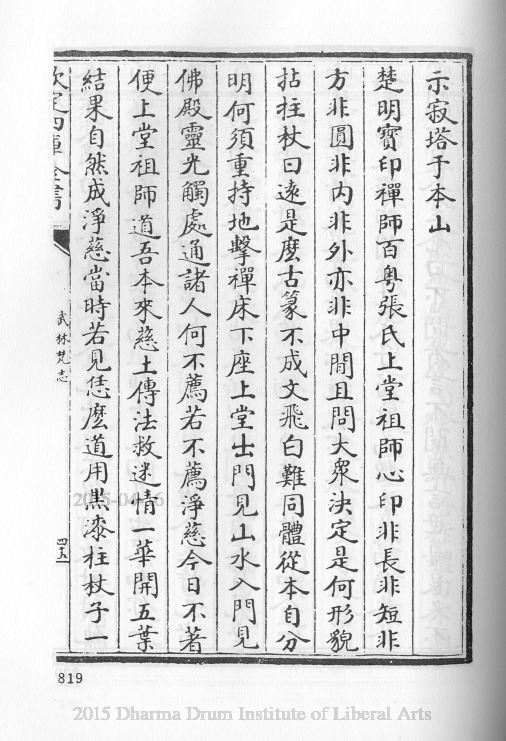 示寂塔于本山
楚明寳印禪師百粤張氏上堂祖師心印非長非短非
方非圓非内非外亦非中間且問大衆決定是何形貌
拈拄杖曰還是麽古篆不成文飛白難同體從本自分
明何須重特地擊禪床下座上堂出門見山水入門見
佛殿靈光觸處通諸人何不薦若不薦淨慈今日不著
便上堂祖師道吾本來慈土傳法救迷情一華開五葉
結果自然成淨慈當時若見恁麽道用黑漆柱杖子一
欽定四庫全書
武林梵志
四五
819
2015 Dharma Drum Institute of Liberal Arts